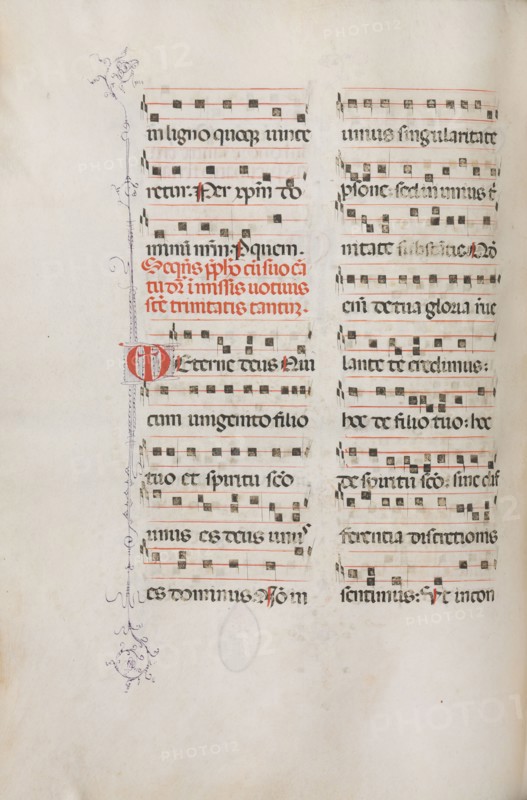 in ligno quoq; uince
retur. Per xp̄m do
minū nr̄m. P quem.
Seq̄ns p̄fho cū suo cā
tu dr̄ i missis uotiuis
sc̄e trinitatis cantur.
Eterne deus Qui
cum unigenito filio
tuo et spiritu sc̄o
unus es deus unus
es dominus. Nō in
unius singularitate
ꝑsone: sed in unius t̄
nitate substātie. Qd̄
enī de tua gloria reue
lante te credimus:
hoc de filio tuo: hoc
de spiritu sc̄o: sine dif
ferentia discretionis
sentimus: Ut in con
PHOTO12